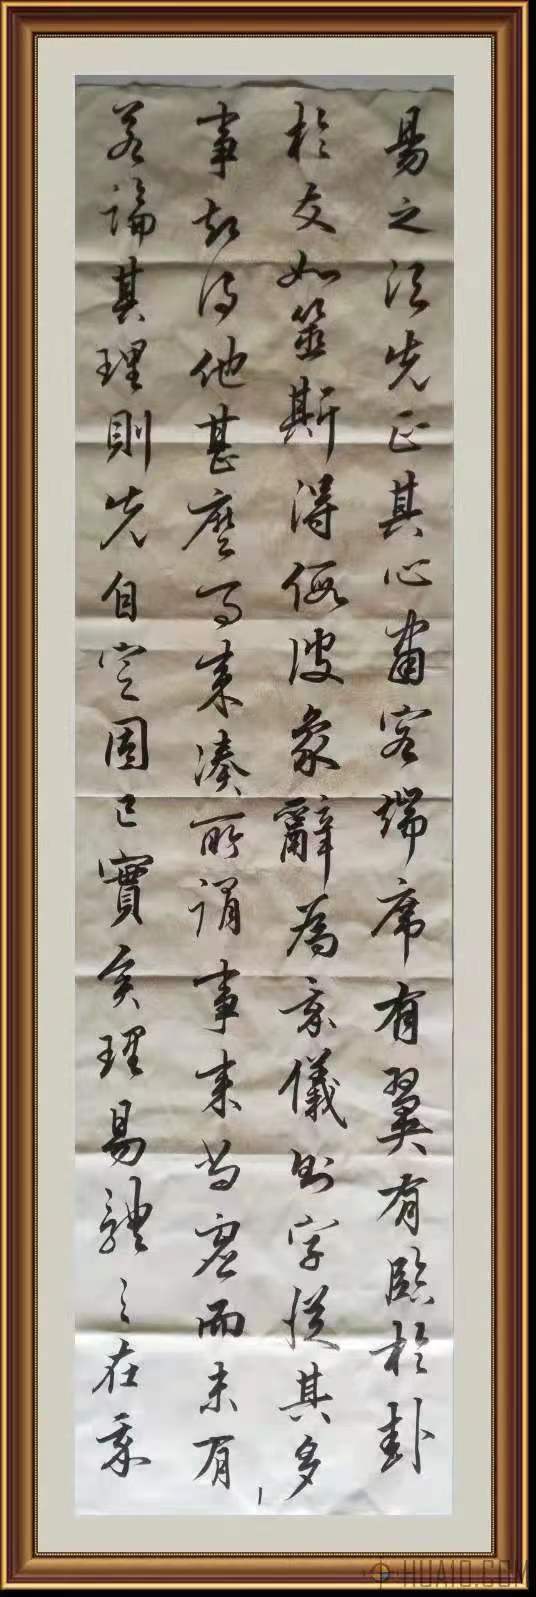 易之法先正其心肅容端席有翼有臨於卦
於爻如筮斯得假彼象辭為我儀則字從其多
事得他甚麼事来湊所謂事来尚虛而未有
若論其理則先自定固已實矣理易體之在我
HUA10.COM